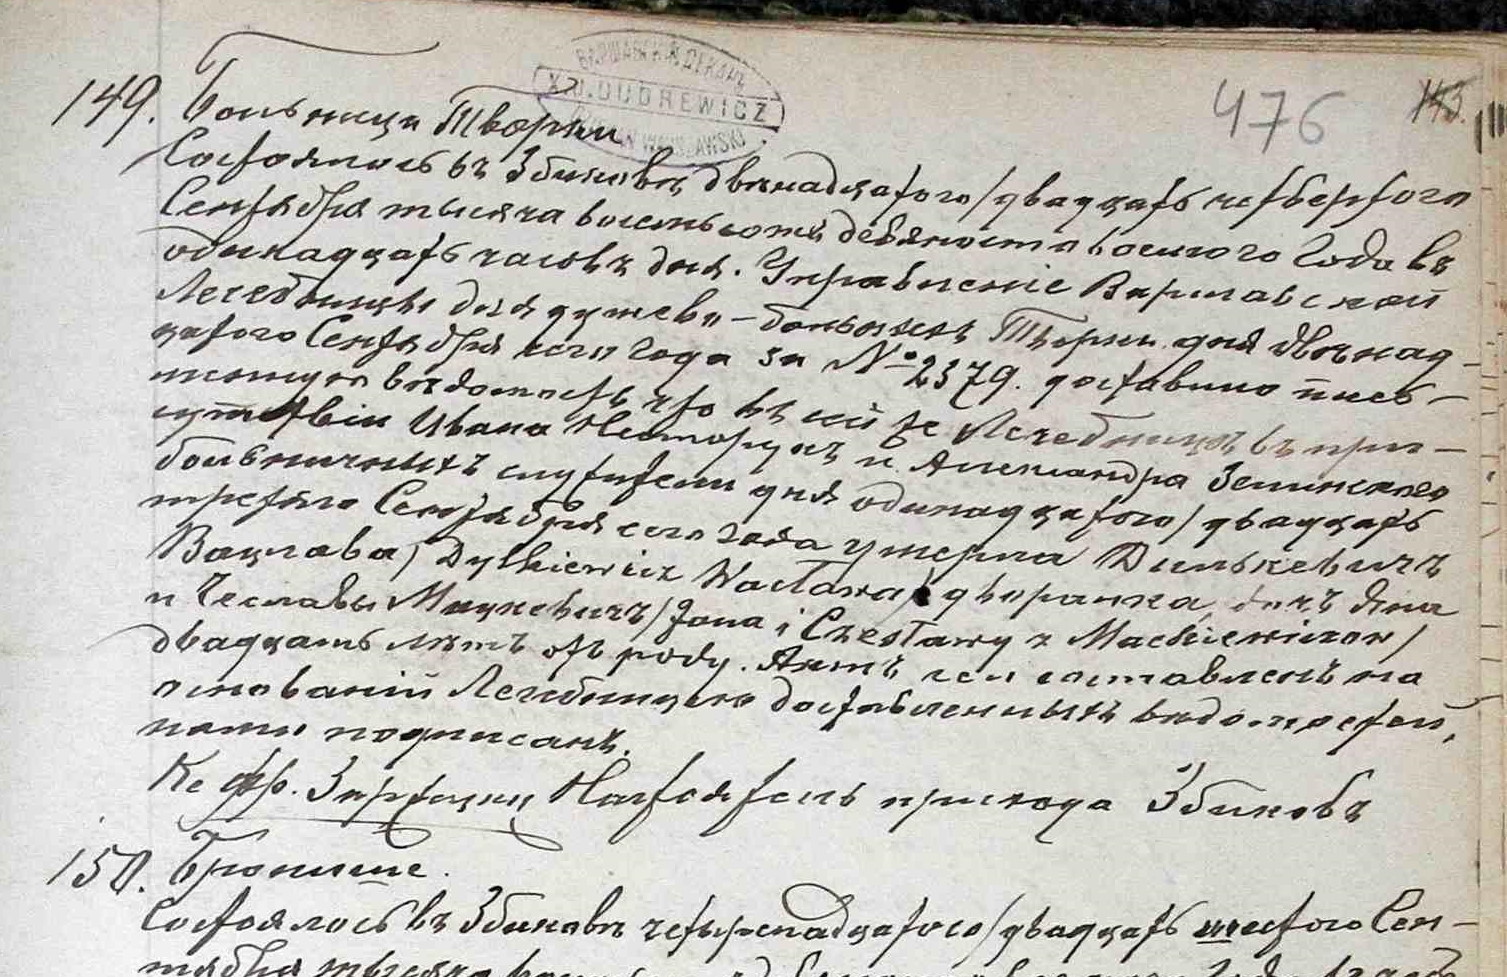 ВАРШАВСКІЙ ДЕКАНЪ
X. J. DUDREWICZ
DZIEKAN WARSZAWSKI
476
143.
149. Больница Творки
Состоялось въ Збиковѣ двѣнадцатого / двадцать четвертого
Сентября тысяча восемьсотъ девяносто восьмого года въ
одинадцать часовъ дня. Управленіе Варшавской
Лечебницы для душевно-больныхъ Творки дня двѣнад-
цатого Сентября сего года за № 2379. доставило пись-
менную вѣдомость что въ сей же Лечебницѣ въ при-
сутствіи Ивана и Александра Зелинского
больничныхъ служителей дня одинадцатого / двадцать
третьяго Сентября сего года умерла Дылькевичъ
Вацлава / Dylkiewicz Wacława / дворянка, дочь Яна
и Чеславы Мацкевичъ / Jana i Czesławy z Mackiewiczow /
двадцать лѣтъ отъ роду. Актъ сей составленъ на
основаніи Лечебницею доставленныхъ вѣдомостей,
нами подписанъ.
Кс Настоятель прихода Збиковъ
150. Бронише.
Состоялось въ Збиковѣ четырнадцатого / двадцать шестого Сен-
тября тысяча